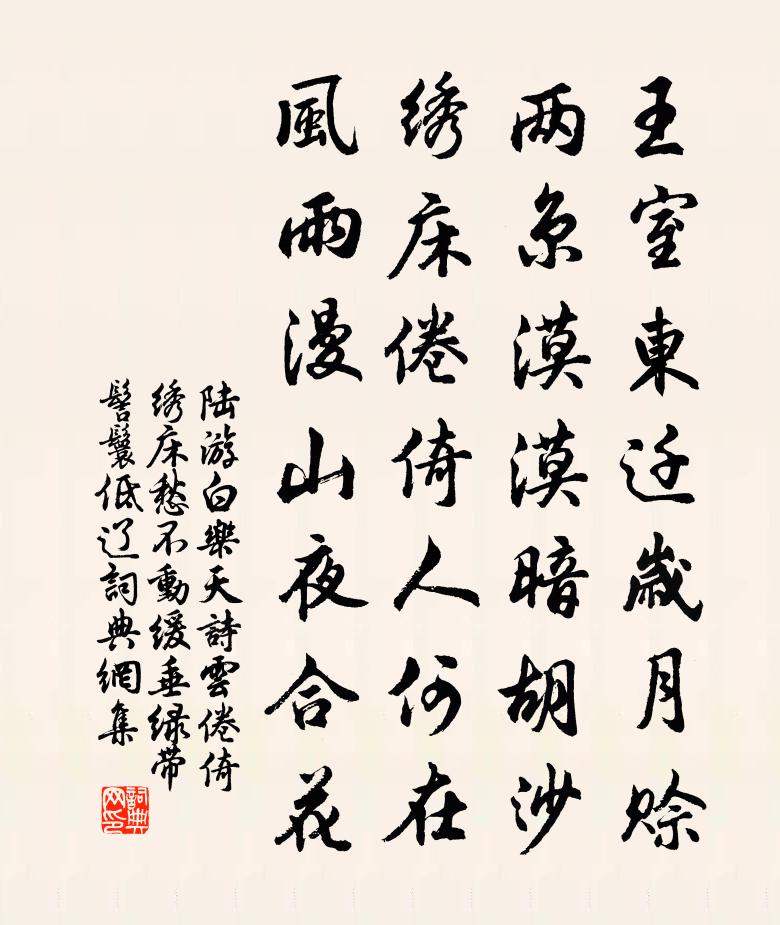 王室東迁歲月赊
两京漠漠暗胡沙
绣床倦倚人何在
風雨漫山夜合花
陆游白樂天詩雲倦倚
绣床愁不動缓垂绿带
髻鬟低辽詞典網集
詞典网印